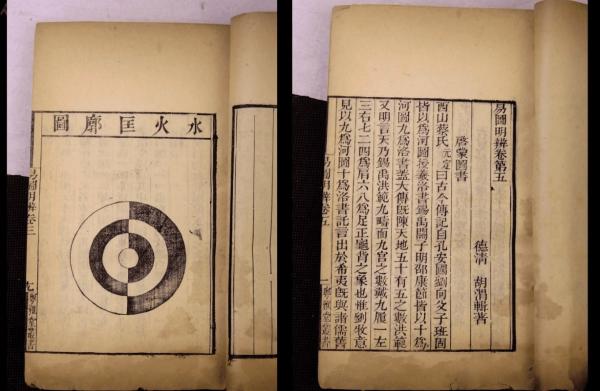 水火匡廓圖
易圖明辨卷三
九
粵雅堂叢書
易圖明辨卷第五
德清 胡渭輯著
啓蒙圖書
西山蔡氏元定曰古今傳記自孔安國劉向父子班固
皆以爲河圖授羲洛書錫禹關子明邵康節皆以十爲
河圖九爲洛書蓋大傳旣陳天地五十有五之數洪範
又明言天乃錫禹洪範九疇而九宮之數戴九履一左
三右七二四爲肩六八爲足正龜背之象也惟劉牧意
見以九爲河圖十爲洛書託言出於希夷旣與諸儒舊
易圖明辨卷五
一
粵雅堂叢書